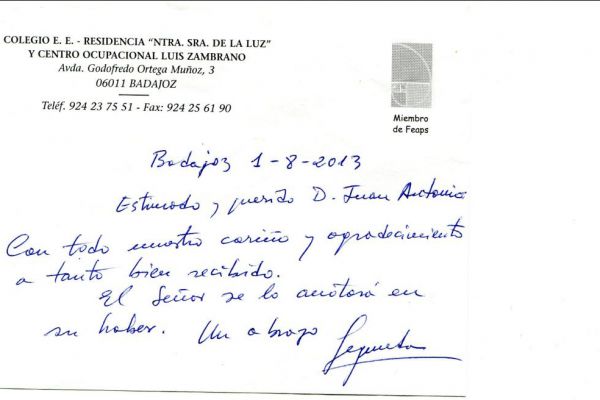 COLEGIO E. E. - RESIDENCIA “NTRA. SRA. DE LA LUZ”
Y CENTRO OCUPACIONAL LUIS ZAMBRANO
Avda. Godofredo Ortega Muñoz, 3
06011 BADAJOZ
Teléf. 924 23 75 51 - Fax: 924 25 61 90
Miembro
de Feaps
Badajoz 1-8-2013
Estimado y querido D. Juan Antonio
Con todo nuestro cariño y agradecimiento
a tanto bien recibido.
El Señor se lo anotará en
su haber. Un abrazo